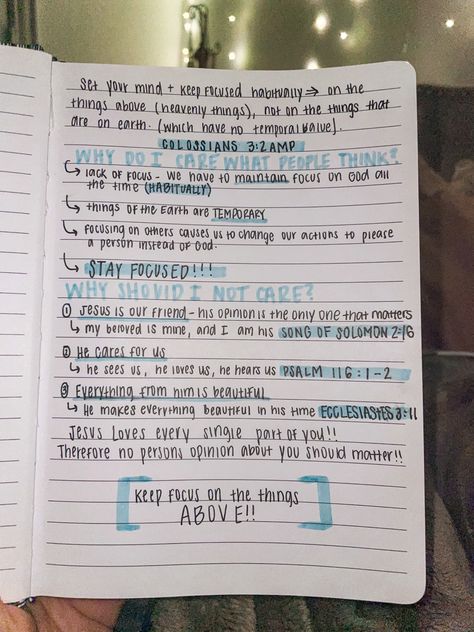 Set your mind + keep focused habitually → on the
things above (heavenly things), not on the things that
are on earth. (which have no temporal value).
COLOSSIANS 3:2 AMP
WHY DO I CARE WHAT PEOPLE THINK?
↳ lack of focus - we have to maintain focus on God all
the time (HABITUALLY)
↳ things of the Earth are TEMPORARY
↳ focusing on others causes us to change our actions to please
a person instead of God.
↳ STAY FOCUSED!!!
WHY SHOULD I NOT CARE?
① Jesus is our friend - his opinion is the only one that matters
↳ my beloved is mine, and I am his SONG OF SOLOMON 2:16
② He cares for us
↳ he sees us, he loves us, he hears us PSALM 116:1-2
③ Everything from him is beautiful
↳ He makes everything beautiful in his time ECCLESIASTES 3:11
Jesus loves every single part of you!!
Therefore no persons opinion about you should matter!!
[Keep focus on the things
ABOVE!!]